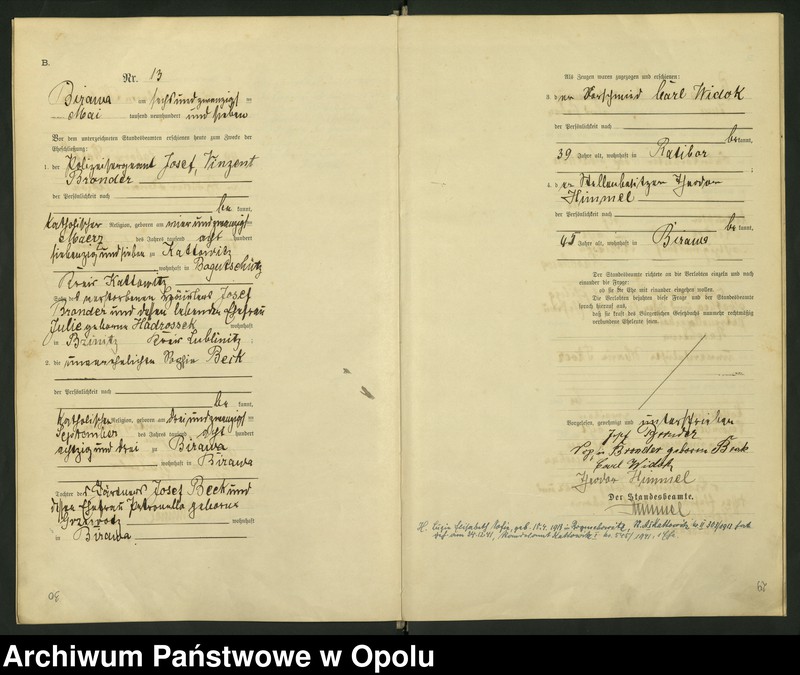 B.
Nr. 13
Birawa am sechsundzwanzigsten
Mai tausend neunhundert und sieben
Vor dem unterzeichneten Standesbeamten erschienen heute zum Zwecke der
Eheschließung:
1. der Polizeisergeant Josef, Vinzent
Bronder
der Persönlichkeit nach
be kannt,
katholischer Religion, geboren am vierundzwanzigsten
Maerz des Jahres tausend acht hundert
siebenzig und sieben zu Kattowitz
wohnhaft in Bogutschütz
Kreis Kattowitz
Sohn des verstorbenen Häuslers Josef
Bronder und dessen lebenden Ehefrau
Julie geborne Hadrossek wohnhaft
in Brinitz Kreis Lublinitz
2. die unverehelichte Sophie Beck
der Persönlichkeit nach
be kannt,
katholischer Religion, geboren am dreiundzwanzigsten
September des Jahres tausend acht hundert
achtzig und drei zu Birawa
wohnhaft in Birawa
Tochter des Gärtners Josef Beck und
dessen Ehefrau Petronella geborne
wohnhaft
in Birawa
30
Als Zeugen waren zugezogen und erschienen:
3. der Vorschmied Carl Widok
der Persönlichkeit nach
be kannt,
39 Jahre alt, wohnhaft in Ratibor
4. der Stellenbesitzer Theodor
Himmel
der Persönlichkeit nach
be kannt,
45 Jahre alt, wohnhaft in Birawa
Der Standesbeamte richtete an die Verlobten einzeln und nach
einander die Frage:
ob sie die Ehe mit einander eingehen wollen.
Die Verlobten bejahten diese Frage und der Standesbeamte
sprach hierauf aus,
daß sie kraft des Bürgerlichen Gesetzbuchs nunmehr rechtmäßig
verbundene Eheleute seien.
Vorgelesen, genehmigt und unterschrieben
Josef Bronder
Sophie Bronder geborne Beck
Carl Widok
Theodor Himmel
Der Standesbeamte.
Himmel
Elisabeth Sofie, geb. 15.4. 1913
am 24.12.41, Standesamt Kattowitz I Nr. 545/1941.
29
Archiwum Państwowe w Opolu